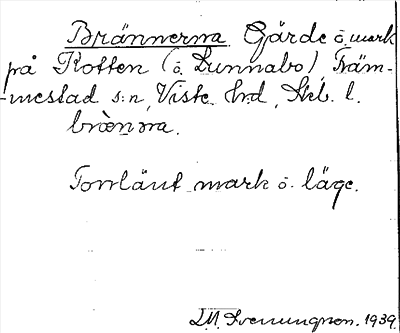 Brännerna Gärde o. mark
på Kotten (o. Lunnabo) Främ-
-mestad s:n, Viste hrd, Skb. l.
brænna.
Torrlänt mark o. läge.
D.M. Svenungson. 1939.